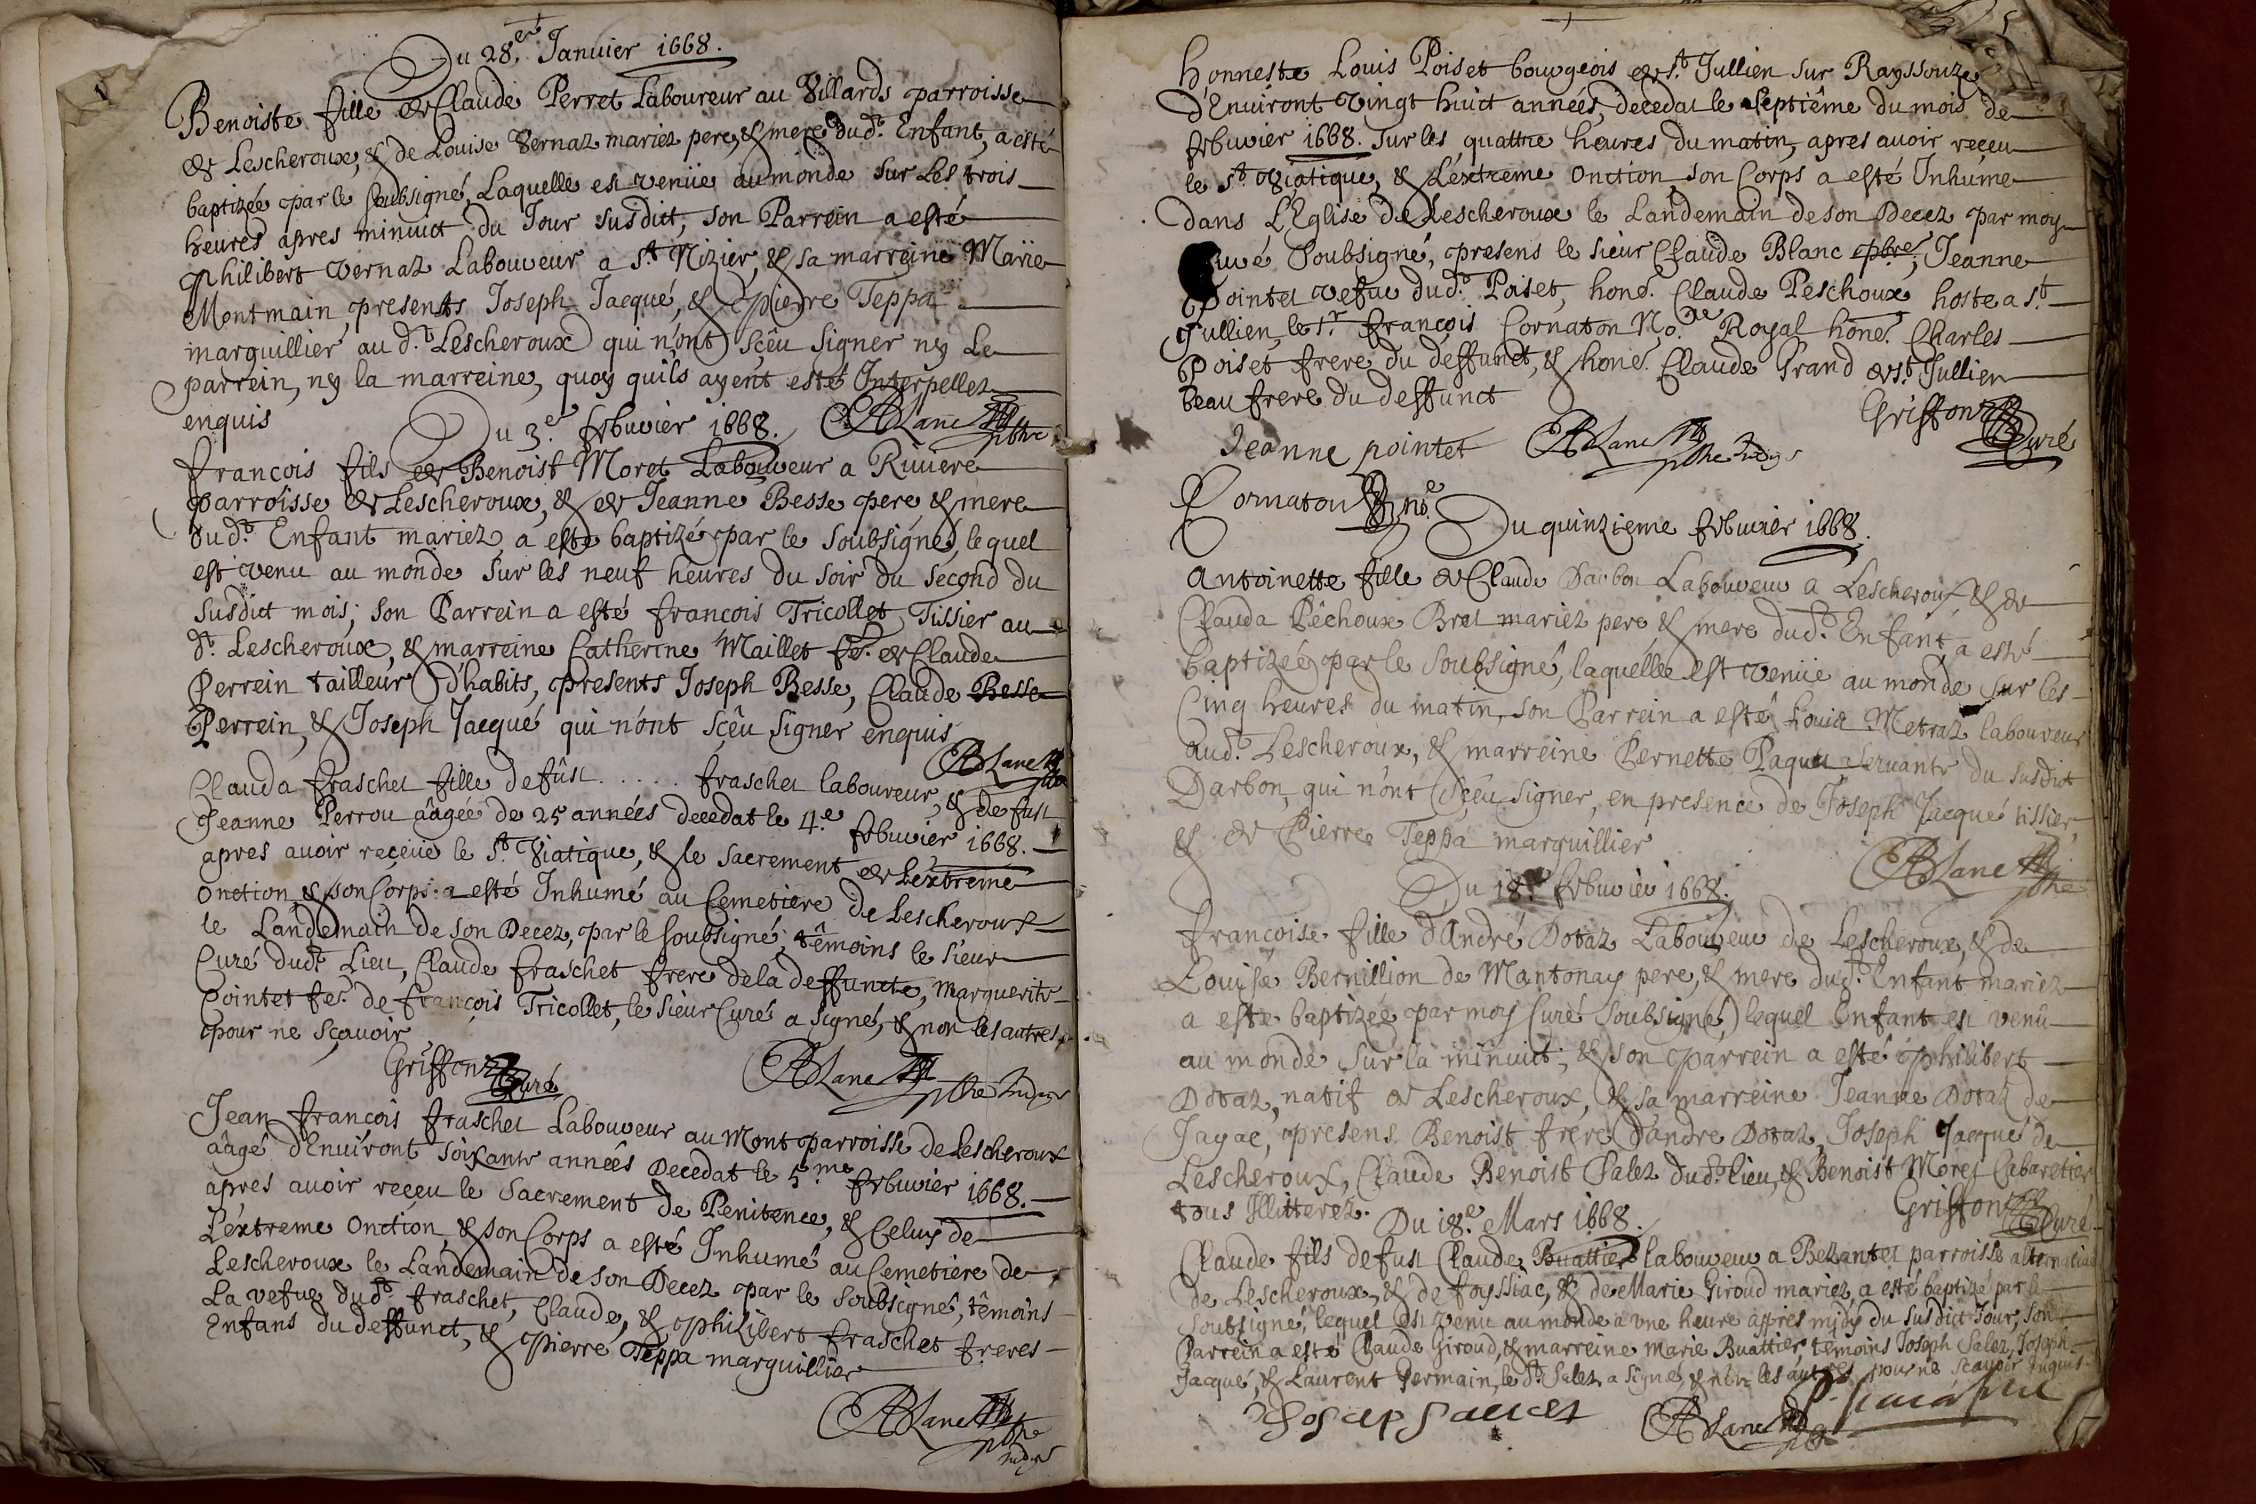 Du 28.e Januier 1668.
Benoiste fille de Claude Perret Laboureur au Villards parroisse
de Lescheroux, & de Louise Vernaz mariez pere, & mere dud.t Enfant, a esté
baptizée par le soubsigné, Laquelle est venüe au monde sur Les trois
heures apres minuict du Jour susdict, son Parrein a esté
Philibert Vernaz Laboureur a S.t Nizier, & sa marreine Marie
Montmain, presents Joseph Jacqué, & Pierre Teppa
marguillier au d.t Lescheroux qui n'ont sçêu signer ny Le
parrein, ny la marreine, quoy quils ayent esté Interpellez
enquis
Blanc pbre
Du 3.e febuvier 1668.
francois fils de Benoist Moret Laboureur a Riviere
parroisse de Lescheroux, & de Jeanne Besse pere & mere
dud.t Enfant mariez, a esté baptizé par le soubsigné, lequel
est venu au monde sur les neuf heures du soir du second du
susdict mois; son Parrein a esté francois Tricollet Tissier au
d.t Lescheroux, & marreine Catherine Maillet fe. de Claude
Perrein tailleur d'habits, presents Joseph Besse, Claude Besse
Perrein, & Joseph Jacqué qui n'ont sçêu signer enquis
Blanc pbre
Clauda fraschet fille de fût . . . . . fraschet laboureur, & de fust
Jeanne Perrou âagée de 25 années decedat le 4.e febuvier 1668.
apres auoir reçeüe le S.t Viatique, & le sacrement de Lextreme
Onction, & son Corps a esté Inhumé au Cemetiere de Lescheroux
le Landemain de son Decez, par le soubsigné; têmoins le sieur
Curé dud.t Lieu, Claude fraschet frere de la deffuncte, marguerite
Pointet fe. de françois Tricollet, le sieur Curé a signé, & non les autres
pour ne sçauoir
Griffon Curé
Blanc pbre Indigne
Jean françois fraschet Laboureur au Mont parroisse de Lescheroux
âagé d'Enuiront soixante années Decedat le 5.me febuvier 1668.
apres auoir reçeu le Sacrement de Penitence, & Celuy de
L'extreme Onction, & son Corps a esté Inhumé au Cemetiere de
Lescheroux le Landemain de son Decez par le Soubsigné, têmoins
La vefue dud.t fraschet, Claude, & Philibert fraschet freres
Enfans du deffunct, & Pierre Teppa marguillier
Blanc pbre
indigne
Honneste Louis Poiset bourgeois de S.t Jullien sur Rayssouze
d'Enuiront vingt huict années, decedat le septiême du mois de
febuvier 1668. sur les quattre heures du matin, apres auoir reçeu
le S.t Viatique, & L'extreme Onction, son Corps a esté Inhumé
dans L'Eglise de Lescheroux le Landemain de son Decez par moy
Curé Soubsigné, presens le sieur Claude Blanc pbre, Jeanne
Pointet vefue dud.t Poiset, hon. Claude Peschoux hoste a S.t
Jullien, le s.r françois Cornaton No.re Royal hone. Charles
Poiset frere du deffunct, & hone. Claude Grand de S.t Jullien
beau frere du deffunct
Griffon Curé
Jeanne pointet
Blanc pbre Indigne
Cornaton no.e
Du quinzieme febuvier 1668.
Antoinette fille de Claude Darbon Laboureur a Lescheroux, & de
Clauda Pêchoux Bret mariez pere & mere dud.t Enfant, a esté
baptizée par le soubsigné, laquelle est venüe au monde sur les
Cinq heures du matin, son Parrein a esté Louis Metraz laboureur
aud.t Lescheroux, & marreine Pernette Paquet servante du susdict
Darbon, qui n'ont sçêu signer, en presence de Joseph Jacqué tissier,
& de Pierre Teppa marguillier
Blanc pbre
Du 18.e febuvier 1668.
françoise fille d'André Dotaz Laboureur de Lescheroux, & de
Louise Bernillion de Mantonay pere, & mere dud.t Enfant mariez
a esté baptizée par moy Curé Soubsigné) lequel Enfant est venû
au monde sur la minuict; & son parrein a esté philibert
Dotaz, natif de Lescheroux, & sa marreine Jeanne Dotaz de
Jayac, presens Benoist frere d'andré Dotaz, Joseph Jacqué de
Lescheroux, Claude Benoist Salez dud.t lieu, & Benoist Moret Cabaretier
tous Illitterez.
Griffon Curé
Du 18.e Mars 1668.
Claude fils de fust Claude Buattier laboureur a Bezantet parroisse alternatiue
de Lescheroux, & de foyssiac, & de Marie Giroud mariez, a esté baptizé par le
soubsigné, lequel est venu au monde a vne heure apres midy du susdict Jour, son
Parrein a esté Claude Giroud, & marreine marie Buattier têmoins Joseph Salez, Joseph
Jacqué, & Laurent Permain, le d.t Salez a signé, & non les autres pour ne sçauoir enquis
Blanc pbre